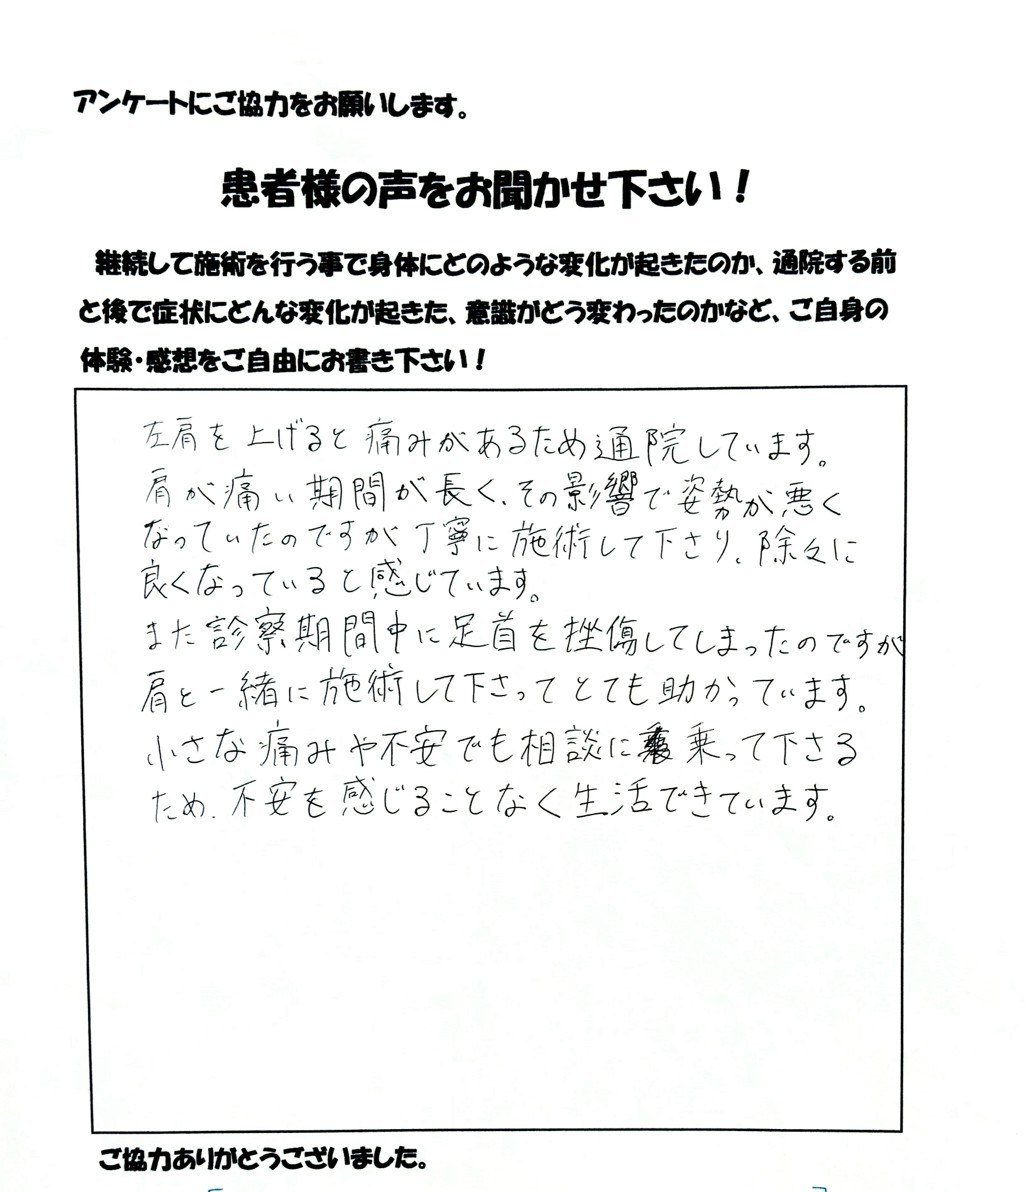 アンケートにご協力をお願いします。
患者様の声をお聞かせ下さい！
継続して施術を行う事で身体にどのような変化が起きたのか、通院する前
と後で症状にどんな変化が起きた、意識がどう変わったのかなど、ご自身の
体験・感想をご自由にお書き下さい！
左肩を上げると痛みがあるため通院しています。
肩が痛い期間が長く、その影響で姿勢が悪く
なっていたのですが丁寧に施術して下さり、除々に
良くなっていると感じています。
また診察期間中に足首を挫傷してしまったのですが
肩と一緒に施術して下さってとても助かっています。
小さな痛みや不安でも相談に乗って下さる
ため、不安を感じることなく生活できています。
ご協力ありがとうございました。